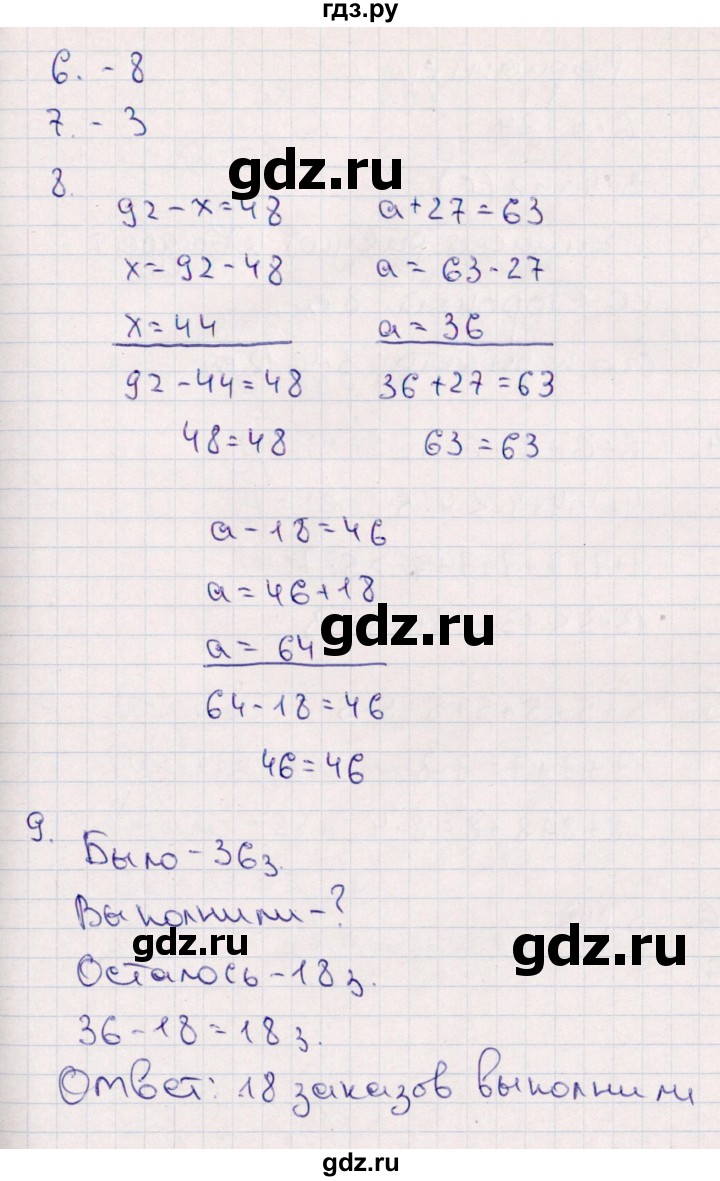 гдз.ру
6. - 8
7. - 3
8.
gdz.ru
92 - x = 48
x = 92 - 48
x = 44
92 - 44 = 48
48 = 48
a + 27 = 63
a = 63 - 27
a = 36
36 + 27 = 63
63 = 63
a - 18 = 46
a = 46 + 18
a = 64
gdz.ru
64 - 18 = 46
46 = 46
9.
Было - 36 з.
Выполнили - ?
gdz.ru
gdz.ru
Осталось - 18 з.
36 - 18 = 18 з.
Ответ: 18 заказов выполнили
gdz.ru